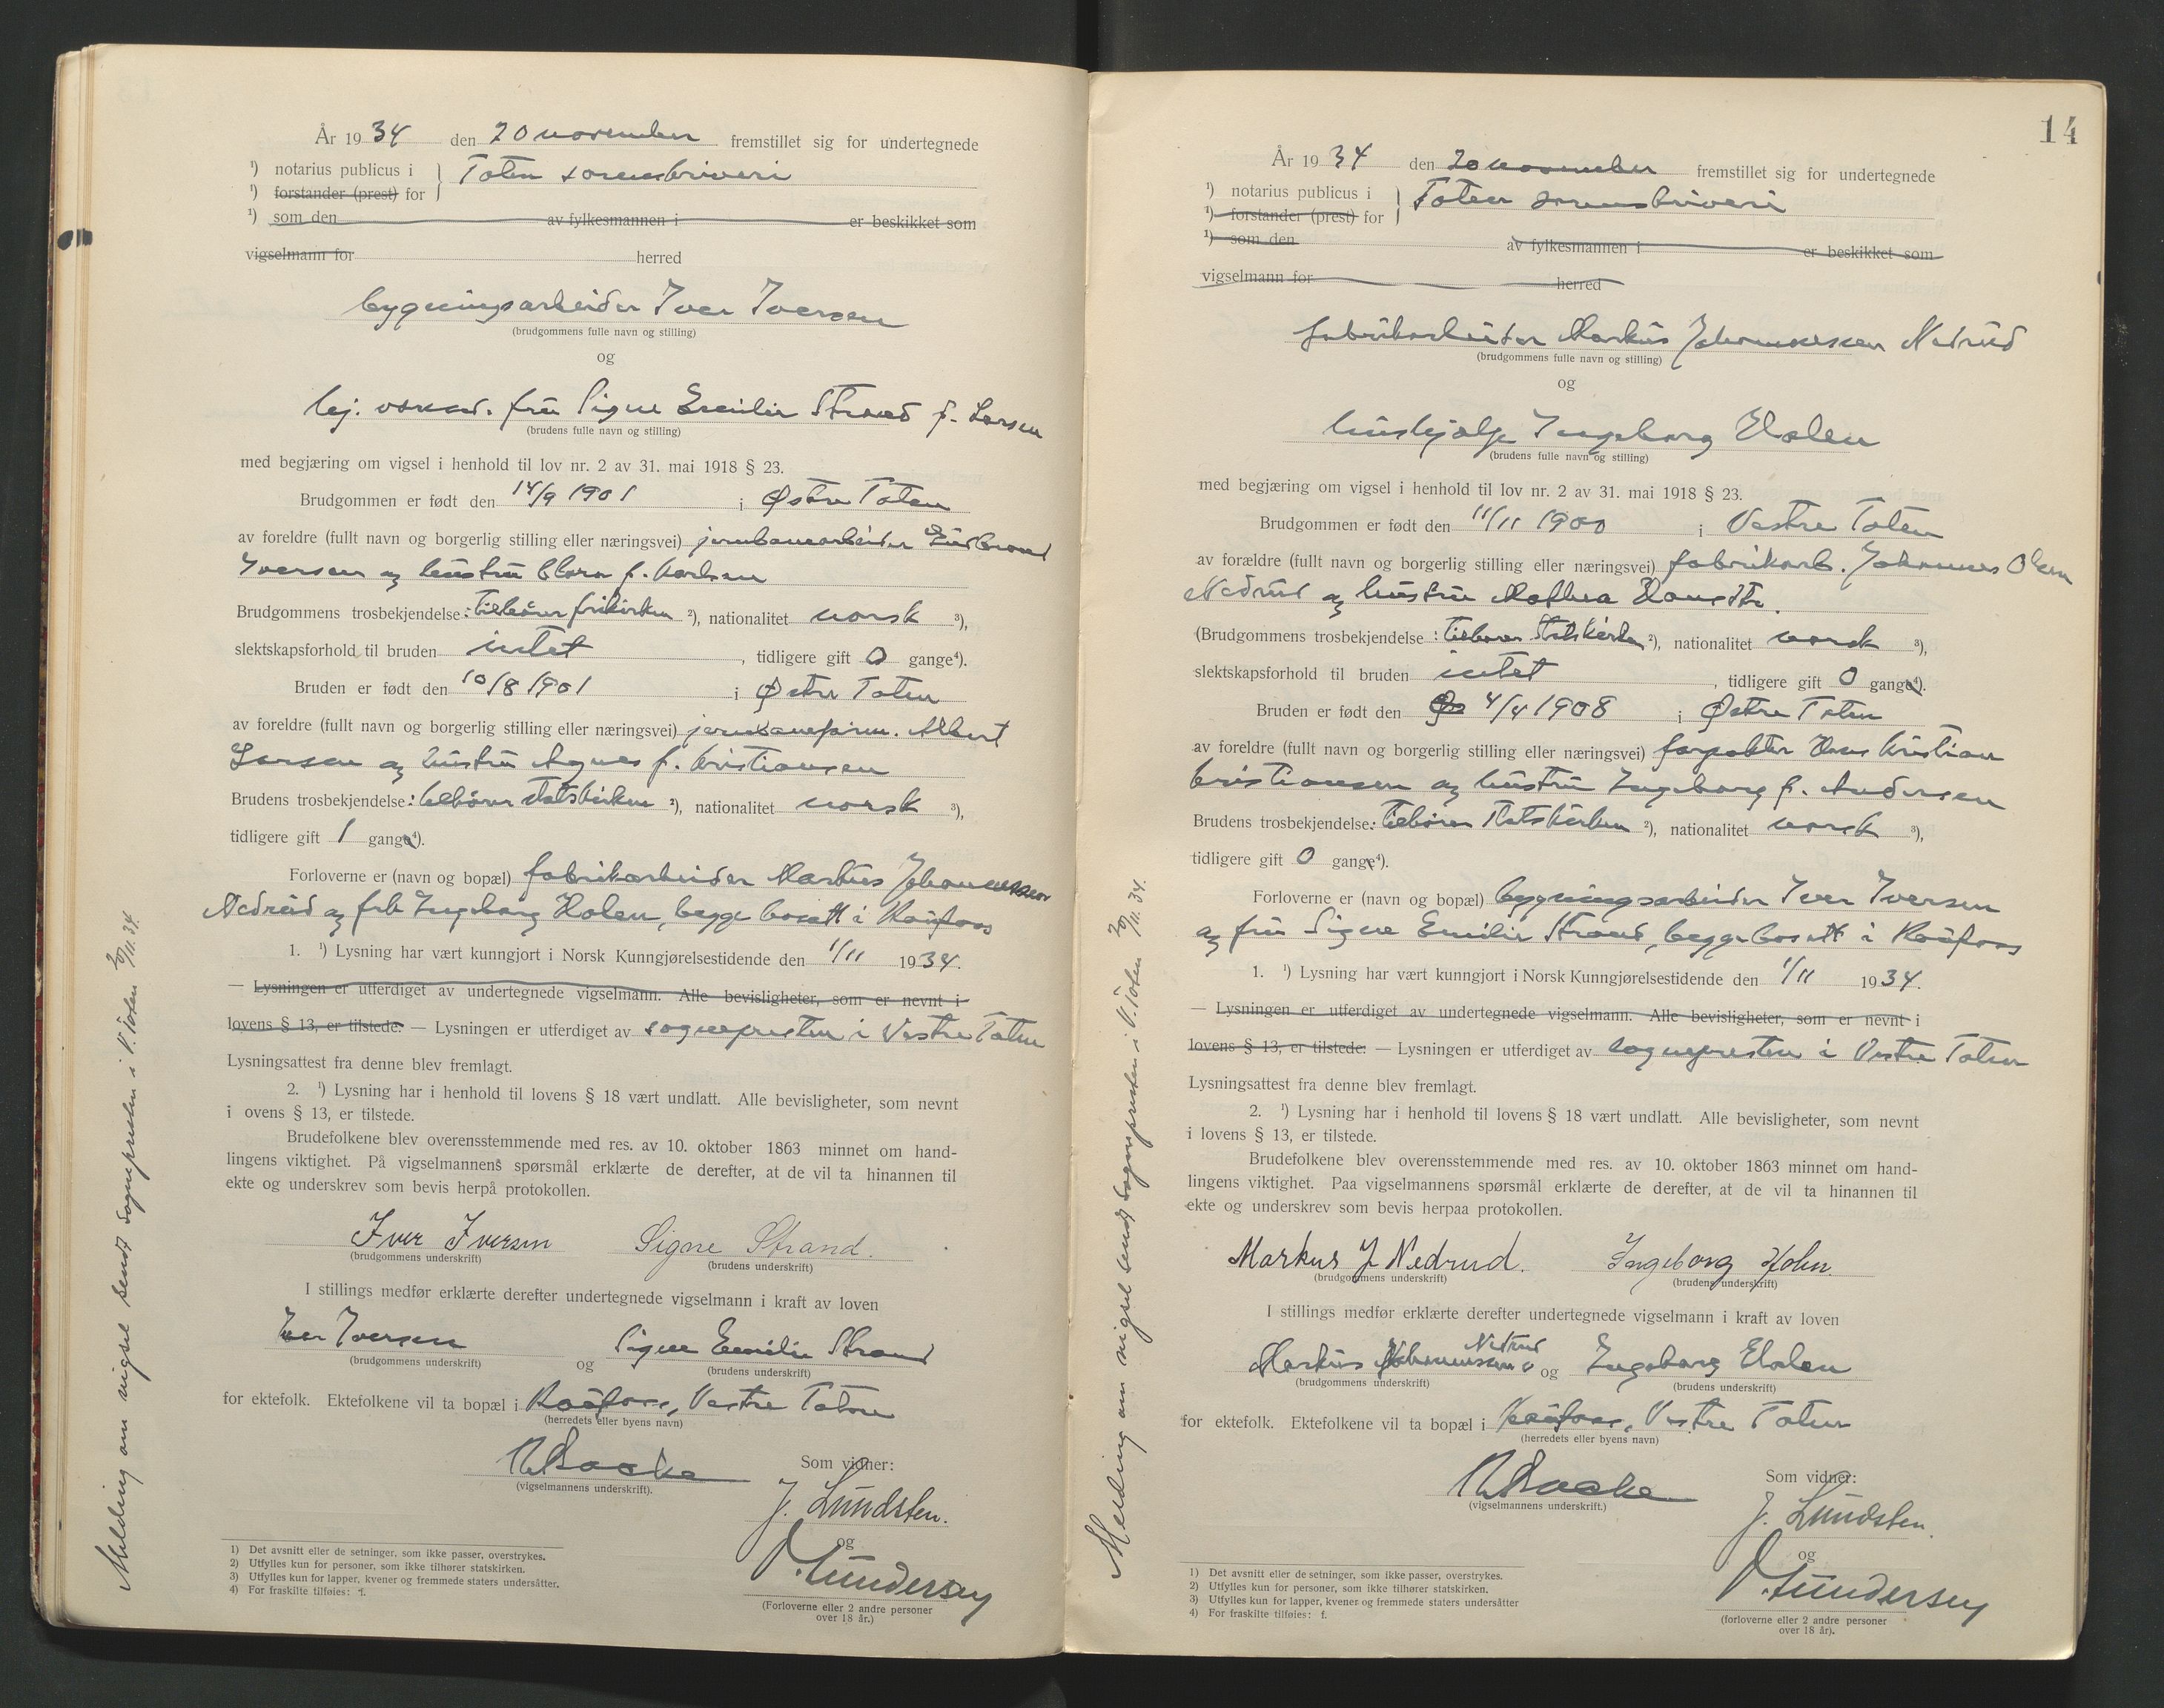 År 1934 den 20 november fremstillet sig for undertegnede
¹) notarius publicus i } Toten sorenskriveri
¹) forstander (prest) for
¹) som den av fylkesmannen i er beskikket som
vigselmann for herred
bygningsarbeider Iver Iversen
(brudgommens fulle navn og stilling)
og
frue Signe Emilie Strand f. Larsen
(brudens fulle navn og stilling)
med begjæring om vigsel i henhold til lov nr. 2 av 31. mai 1918 § 23.
Brudgommen er født den 14/9 1901 i Østre Toten
av foreldre (fullt navn og borgerlig stilling eller næringsvei) jernbanearbeider Gudbrand
Iversen og hustru Clara f. Karlsen
Brudgommens trosbekjendelse: tilhører frikirken ²), nationalitet norsk ³),
slektskapsforhold til bruden intet, tidligere gift 0 gange⁴).
Bruden er født den 10/8 1901 i Østre Toten
av foreldre (fullt navn og borgerlig stilling eller næringsvei) jernbaneform. Albert
Larsen og hustru Agnes f. Kristiansen
Brudens trosbekjendelse: tilhører statskirken ²), nationalitet norsk ³),
tidligere gift 1 gange⁴).
Forloverne er (navn og bopæl) fabrikarbeider Markus Johannessen
Nedrud og frk Ingeborg Holen, begge bosatt i Raufoss
1. ¹) Lysning har vært kunngjort i Norsk Kunngjørelsestidende den 1/11 1934.
— Lysningen er utferdiget av undertegnede vigselmann. Alle bevisligheter, som er nevnt i
lovens § 13, er tilstede. — Lysningen er utferdiget av sognepresten i Vestre Toten
Lysningsattest fra denne blev fremlagt.
2. ¹) Lysning har i henhold til lovens § 18 vært undlatt. Alle bevisligheter, som nevnt
i ovens § 13, er tilstede.
Brudefolkene blev overensstemmende med res. av 10. oktober 1863 minnet om hand-
lingens viktighet. På vigselmannens spørsmål erklærte de derefter, at de vil ta hinannen til
ekte og underskrev som bevis herpå protokollen.
Iver Iversen Signe Strand.
(brudgommens underskrift) (brudens underskrift)
I stillings medfør erklærte derefter undertegnede vigselmann i kraft av loven
Iver Iversen og Signe Emilie Strand
(brudgommens underskrift) (brudens underskrift)
for ektefolk. Ektefolkene vil ta bopæl i Raufoss, Vestre Toten
(herredets eller byens navn)
(vigselmannens underskrift).
Som vidner:
J. Lundsten.
og
Gundersen
(Forloverne eller 2 andre personer
over 18 år.)
1) Det avsnitt eller de setninger, som ikke passer, overstrykes.
2) Utfylles kun for personer, som ikke tilhører statskirken.
3) Utfylles kun for lapper, kvener og fremmede staters undersåtter.
4) For fraskilte tilføies: f.
Melding om vigsel sendt sognepresten i V. Toten 20/11. 34.
14
År 1934 den 20 november fremstillet sig for undertegnede
¹) notarius publicus i } Toten sorenskriveri
¹) forstander (prest) for
¹) som den av fylkesmannen i er beskikket som
vigselmann for herred
fabrikarbeider Markus Johannessen Nedrud
(brudgommens fulle navn og stilling)
og
hushjelp Ingeborg Holen
(brudens fulle navn og stilling)
med begjæring om vigsel i henhold til lov nr. 2 av 31. mai 1918 § 23.
Brudgommen er født den 11/11 1900 i Vestre Toten
av forældre (fullt navn og borgerlig stilling eller næringsvei) fabrikarb. Johannes Olsen
Nedrud og hustru Mathea Hansdtr.
(Brudgommens trosbekjendelse: tilhører statskirken ²), nationalitet norsk ³),
slektskapsforhold til bruden intet, tidligere gift 0 gange⁴).
Bruden er født den 4/4 1908 i Østre Toten
av foreldre (fullt navn og borgerlig stilling eller næringsvei) forpakter Hans Kristian
Kristiansen og hustru Ingeborg f. Andersen
Brudens trosbekjendelse: tilhører statskirken ²), nationalitet norsk ³),
tidligere gift 0 gange⁴).
Forloverne er (navn og bopæl) bygningsarbeider Iver Iversen
og fru Signe Emilie Strand, begge bosatt i Raufoss
1. ¹) Lysning har vært kunngjort i Norsk Kunngjørelsestidende den 1/11 1934.
— Lysningen er utferdiget av undertegnede vigselmann. Alle bevisligheter, som er nevnt i
lovens § 13, er tilstede. — Lysningen er utferdiget av sognepresten i Vestre Toten
Lysningsattest fra denne blev fremlagt.
2. ¹) Lysning har i henhold til lovens § 18 vært undlatt. Alle bevisligheter, som nevnt
i lovens § 13, er tilstede.
Brudefolkene blev overensstemmende med res. av 10. oktober 1863 minnet om hand-
lingens viktighet. Paa vigselmannens spørsmål erklærte de derefter, at de vil ta hinannen til
ekte og underskrev som bevis herpaa protokollen.
Markus J Nedrud. Ingeborg Holen.
(brudgommens underskrift) (brudens underskrift)
I stillings medfør erklærte derefter undertegnede vigselmann i kraft av loven
Markus Johannessen Nedrud og Ingeborg Holen
(brudgommens underskrift) (brudens underskrift)
for ektefolk. Ektefolkene vil ta bopæl i Raufoss, Vestre Toten
(herredets eller byens navn)
(vigselmannens underskrift.)
Som vidner:
J. Lundsten.
og
Gundersen
(forloverne eller 2 andre personer
over 18 år).
1) Det avsnitt eller de setninger, som ikke passer, overstrykes.
2) Utfylles kun for personer, som ikke tilhører statskirken.
3) Utfylles kun for lapper, kvener og fremmede staters undersåtter
4) For fraskilte tilføies: f.
Melding om vigsel sendt sognepresten i V. Toten 20/11. 34.